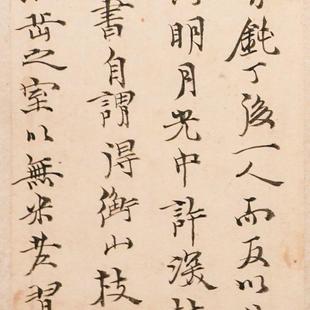 鈍丁後一人而反以
明月光中許渡
書自謂得衡山枝
岳之室以無米老習